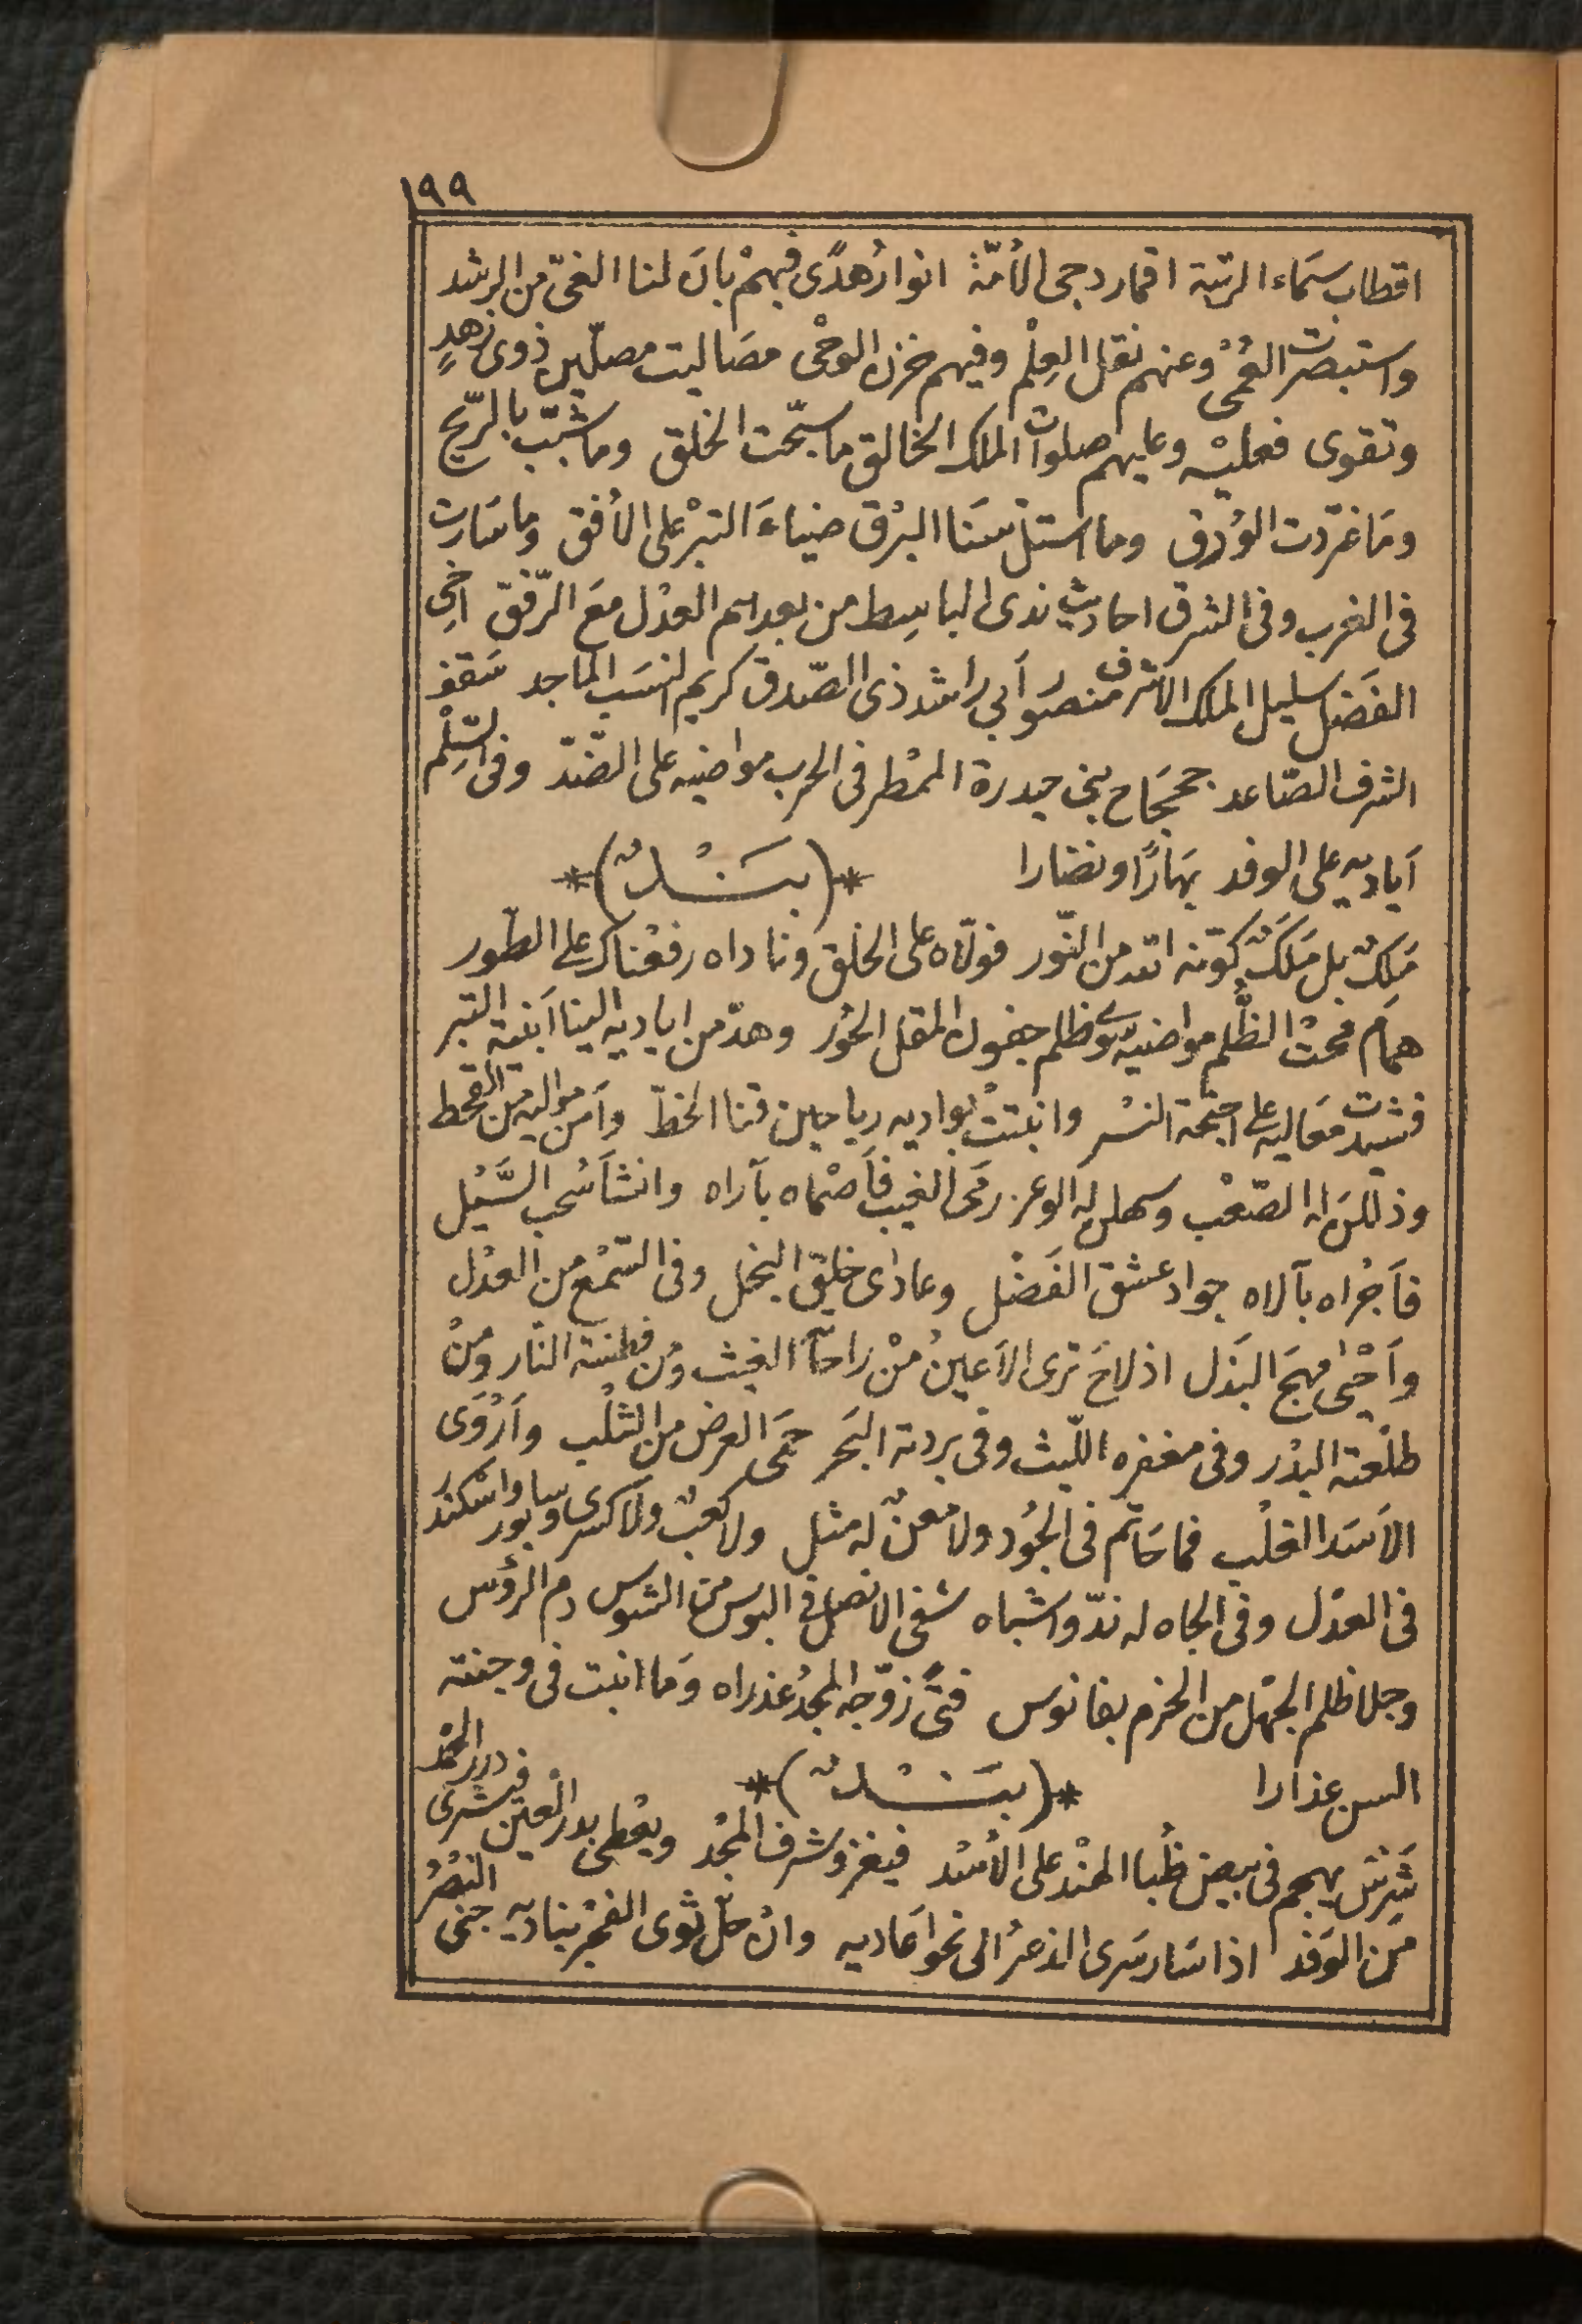 ١٩٩
اقطاب سَماء الرتبة اقمار دجى الأمّة انوارُ هدًى فبهمْ بانَ لنا الغىّ من الرشد
واستبصرت العُمْىُ وعنهم نقل العِلْم وفيهم خزن الوحْى مصَاليت مصلّين ذوى زهدٍ
وتقوى فعليْه وعليهم صلوات الملك الخالق ما سبّحت الخلق وما شبّب بالرّيح
ومَا غرّدت الوُرق وما استلّ سَنا البرْق ضياءَ التبرْ على الأفق وما سَارت
فى الغرب وفى الشرق احاديث ندى الباسِط من بعد اسم العدْل معَ الرّفق اخِى
الفَضل سليل الملك الاشرف منصوُر أبي راشد ذى الصّدق كريم النسَب الماجد سَقف
الشرف الصّاعد جحجَاح بنى حيدرة الممْطر فى الحرب مواضيه على الضّدّ وفى السِّلْم
اَياديه على الوفد بهَارًا ونضارا *(بَنْدٌ)*
مَلِكٌ بل مَلَكٌ كوّنه الله من النّور فولّاه على الخلق وناداه رفعْناك على الطّور
همام محتْ الظُّلم مواضيه سوى ظلم جفون المقل الحُور وهدّ من اياديه الينا اَبنية التبر
فشيدت معَاليه على اجنحة النسْر وانبتتْ بواديه رياحين قنا الخطّ وآمن مواليه من القحط
وذللنَ له الصّعْب وسهلن له الوعر رمَى الغيب فأصْماه بآراه وانشأ سُحب السَّيْل
فأجْراه بآلاه جواد عشق الفَضْل وعادٰى خليق البخل وفى السّمْع من العدْل
وأحْيٰى مهجَ البَذل اذ لاحَ ترى الأعينُ منْ راحتهِ الغيث ومن فطنته النّار ومنْ
طلْعته البدْر وفى مغفره اللّيث وفى بردته البَحر حمَى العرض من الثلْب وأرْوَى
الأسَد الغلْب فما حَاتم فى الجُود ولا معنٌ له مثل ولا كعبٌ ولا كسرى وسابور واسْكندَر
فى العدْل وفى الجاه له ندّ واشباه شفى الانصل فى البوس من الشوس دم الرؤس
وجلا ظلم الجهْل من الحزم بفانوس فتًى زوّجه المجدُ عذراه وَما انبت فى وجنته
السن عذارا *(بَنْدٌ)*
شَرِسٌ يهجم فى بيض ظُبا الهنْد على الأسْد فيغزو شرف المجْد ويعْطى بدر العين فيشرى درر الحمْد
مِن الوَفد اذا سَار سَرى الذعرُ الى نحو اعَاديه وانْ حلّ ثوى الفخْر بناديه جنى النصْرُ